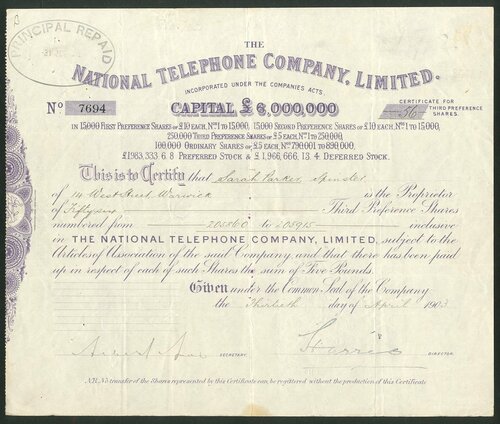 PRINCIPAL REPAID
THE
NATIONAL TELEPHONE COMPANY, LIMITED.
INCORPORATED UNDER THE COMPANIES ACTS.
No 7694
CAPITAL £ 6,000,000
CERTIFICATE FOR
56 THIRD PREFERENCE
SHARES.
IN 15,000 FIRST PREFERENCE SHARES OF £10 EACH, No 1 TO 15,000, 15,000 SECOND PREFERENCE SHARES OF £10 EACH, No 1 TO 15,000,
250,000 THIRD PREFERENCE SHARES OF £5 EACH, No 1 TO 250,000,
100,000 ORDINARY SHARES OF £5 EACH, No 790,001 TO 890,000,
£1,983,333 6.8 PREFERRED STOCK & £1,966,666,13 4 DEFERRED STOCK.
This is to Certify that Sarah Parker, Spinster
of 14 West Street Warwick is the Proprietor
of Fifty six Third Preference Shares
numbered from 205860 to 205915 inclusive
in THE NATIONAL TELEPHONE COMPANY, LIMITED, subject to the
Articles of Association of the said Company, and that there has been paid
up in respect of each of such Shares the sum of Five Pounds.
Given under the Common Seal of the Company
the Thirtieth day of April 1903
SECRETARY.
DIRECTOR.
N.B. No transfer of the Shares represented by this Certificate can be registered without the production of this Certificate